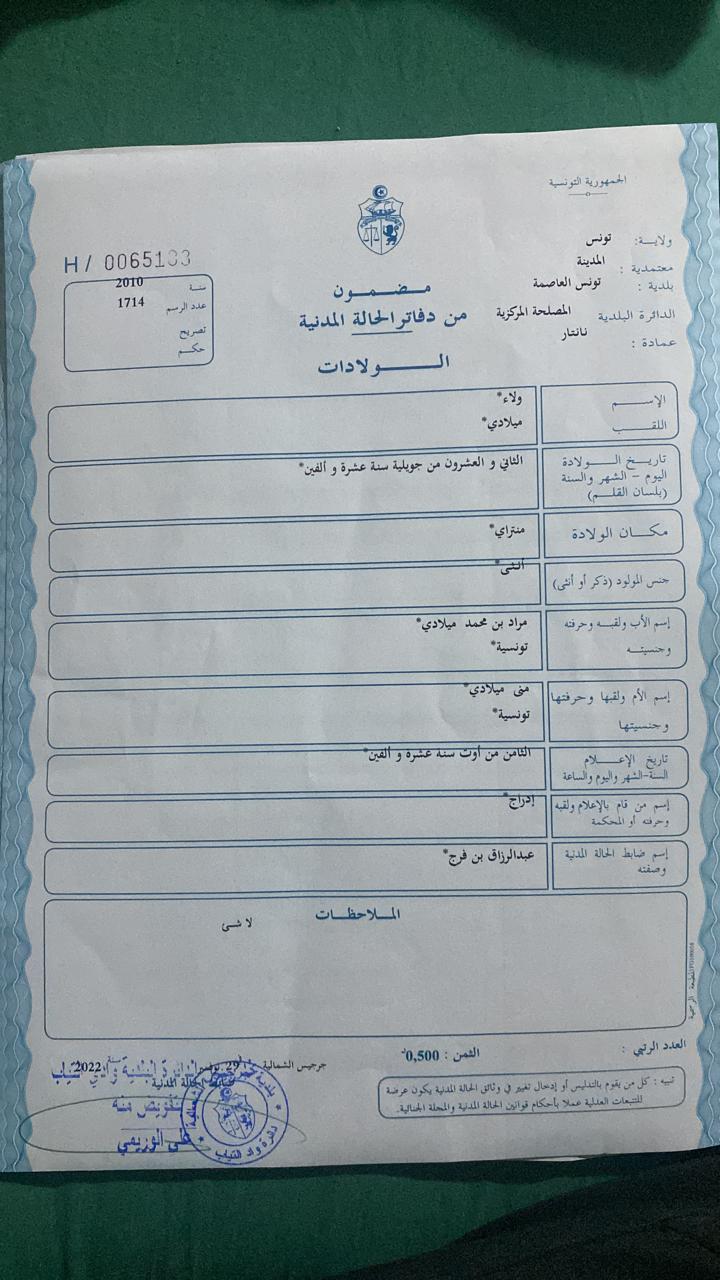 الجمهورية التونسية
ولاية: تونس
معتمدية : المدينة
بلدية : تونس العاصمة
الدائرة البلدية المصلحة المركزية
عمادة : نانتار
H/ 0065133
سنة 2010
عدد الرسم 1714
تصريح
حكم
مضمون
من دفاتر الحالة المدنية
الولادات
الإسم ولاء*
اللقب ميلادي*
تاريخ الولادة
اليوم - الشهر والسنة
(بلسان القلم)
الثاني و العشرون من جويلية سنة عشرة و ألفين*
مكان الولادة منتراي*
جنس المولود (ذكر أو أنثى) أنثى*
إسم الأب ولقبه وحرفته
وجنسيته
مراد بن محمد ميلادي*
تونسية*
إسم الأم ولقبها وحرفتها
وجنسيتها
منى ميلادي*
تونسية*
تاريخ الإعلام
السنة-الشهر واليوم والساعة
الثامن من أوت سنة عشرة و ألفين*
إسم من قام بالإعلام ولقبه
وحرفته أو المحكمة
إدراج*
إسم ضابط الحالة المدنية
وصفته
عبدالرزاق بن فرج*
الملاحظات
لا شئ
المطبعة الرسمية
العدد الرتبي :
الثمن : 0,500د
تنبيه : كل من يقوم بالتدليس أو إدخال تغيير في وثائق الحالة المدنية يكون عرضة
للتتبعات العدلية عملا بأحكام قوانين الحالة المدنية والمجلة الجنائية.
جرجيس الشمالية في 29 نوفمبر سنة 2022
ضابط الحالة المدنية
بتفويض منه
علي الوزيمي
دائرة واد التياب